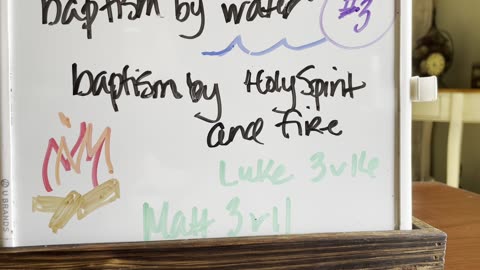 baptism by water
#3
baptism by Holy Spirit
and fire
Luke 3 v 16
Matt 3 v 11
U BRANDS